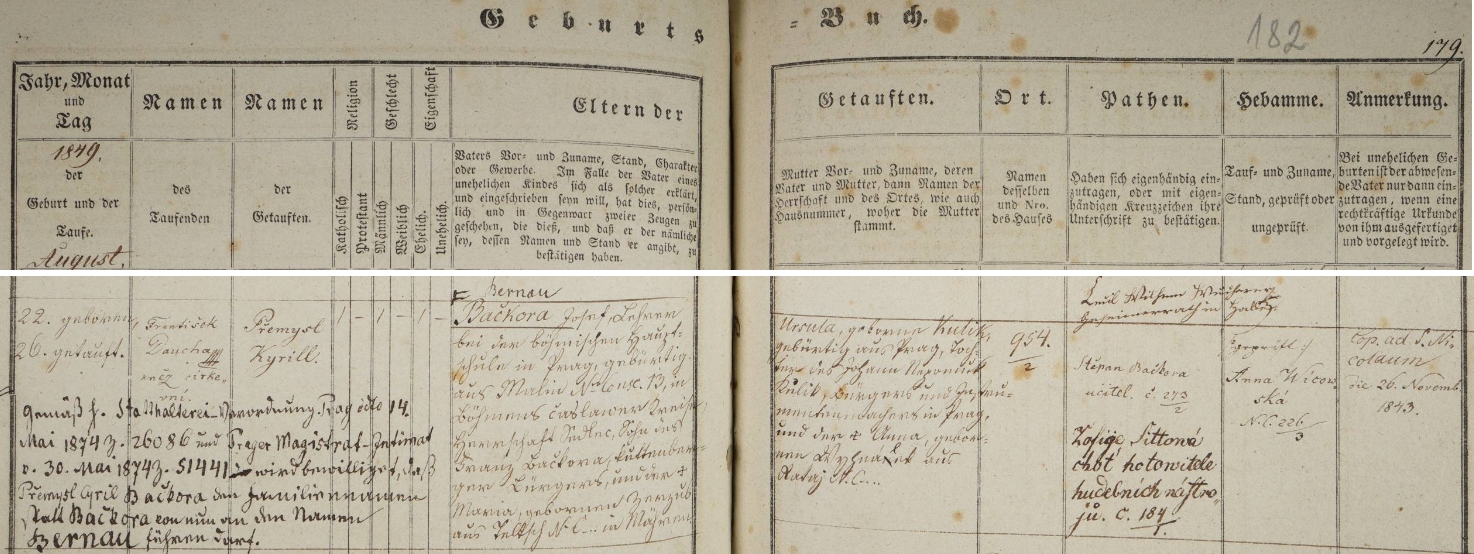 Geburts = Buch.
182
179.
Jahr, Monat
und
Tag
1849.
der
Geburt und der
Taufe.
August.
Namen
des
Taufenden
Namen
der
Getauften.
Religion
Katholisch
Protestant
Geschlecht
Männlich
Weiblich
Eigenschaft
Ehelich.
Unehelich.
Eltern der
Vaters Vor- und Zuname, Stand, Charakter
oder Gewerbe. Im Falle der Vater eines
unehelichen Kindes sich als solcher erklärt,
und eingeschrieben seyn will, hat dies, persön-
lich und in Gegenwart zweier Zeugen zu
geschehen, die dieß, und daß er der nämliche
sey, dessen Namen und Stand er angibt, zu
bestätigen haben.
Getauften.
Mutter Vor- und Zuname, deren
Vater und Mutter, dann Namen der
Herrschaft und des Ortes, wie auch
Hausnummer, woher die Mutter
stammt.
Ort.
Namen
desselben
und Nro.
des Hauses
Pathen.
Haben sich eigenhändig ein-
zutragen, oder mit eigen-
händigen Kreuzzeichen ihre
Unterschrift zu bestätigen.
Hebamme.
Tauf- und Zuname,
Stand, geprüft oder
ungeprüft.
Anmerkung.
Bei unehelichen Ge-
burten ist der abwesen-
de Vater nur dann ein-
zutragen, wenn eine
rechtkräftige Urkunde
von ihm ausgefertiget
und vorgelegt wird.
22. geboren,
26. getauft.
František
Daucha
kněz cirke-
vní.
Přemysl
Kyrill.
1 - 1 - 1 -
Bernau
Bačkora Josef, Lehrer
bei der böhmischen Haupt-
schule in Prag, gebürtig
aus Malin N. Consc. 13, in
Böhmens Caslawer Kreise,
Herrschaft Sedlec, Sohn des
Franz Bačkora, Kuttenber-
ger Bürgers, und der †
Maria, gebornen Herzub
aus Teltsch N.C... in Mähren
Ursula, geborne Kulik,
gebürtig aus Prag, Toch-
ter des Johann Nepomuck
Kulik, Bürgers und Instru-
mentenmachers in Prag,
und der † Anna, gebor-
nen
aus
Rataj N.C....
954.
2
Geheimerrath in
Štěpan Bačkora
učitel. č. 273
2
Žofiye Sittová
choť hotowitele
hudebních nástro-
jů. Č. 184
1.
geprüft
Anna Wicow-
ská
N.C. 226
3
Cop. ad S. Ni-
colaum
die 26. Novemb.
1843.
Gemäß h. Statthalterei-Verordnung Prag ddto 14.
Mai 1874 Z. 26086 und Prager Magistrat-Intimat
v. 30. Mai 1874 Z. 51441 wird bewilliget, daß
Přemysl Cyril Bačkora den Familiennamen
statt Bačkora von nun an den Namen
Bernau führen darf.